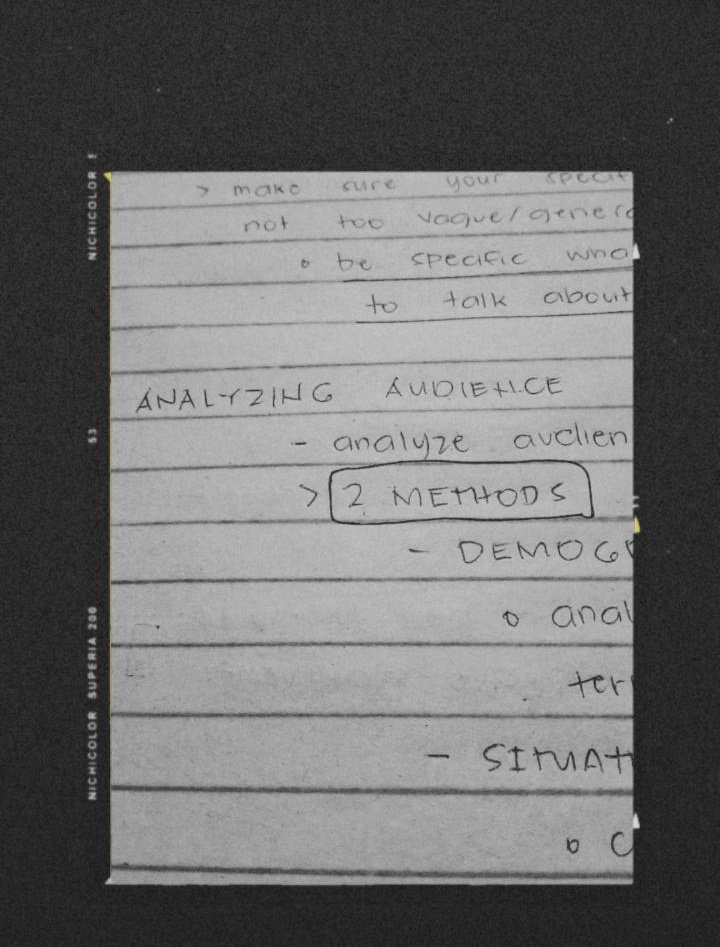 > make sure your specif
not too vague/genera
o be specific wha
to talk about
ANALYZING AUDIENCE
- analyze audien
> 2 METHODS
- DEMOG
o anal
ter
- SITUAT
o C
NICHICOLOR S
53
NICHICOLOR SUPERIA 200